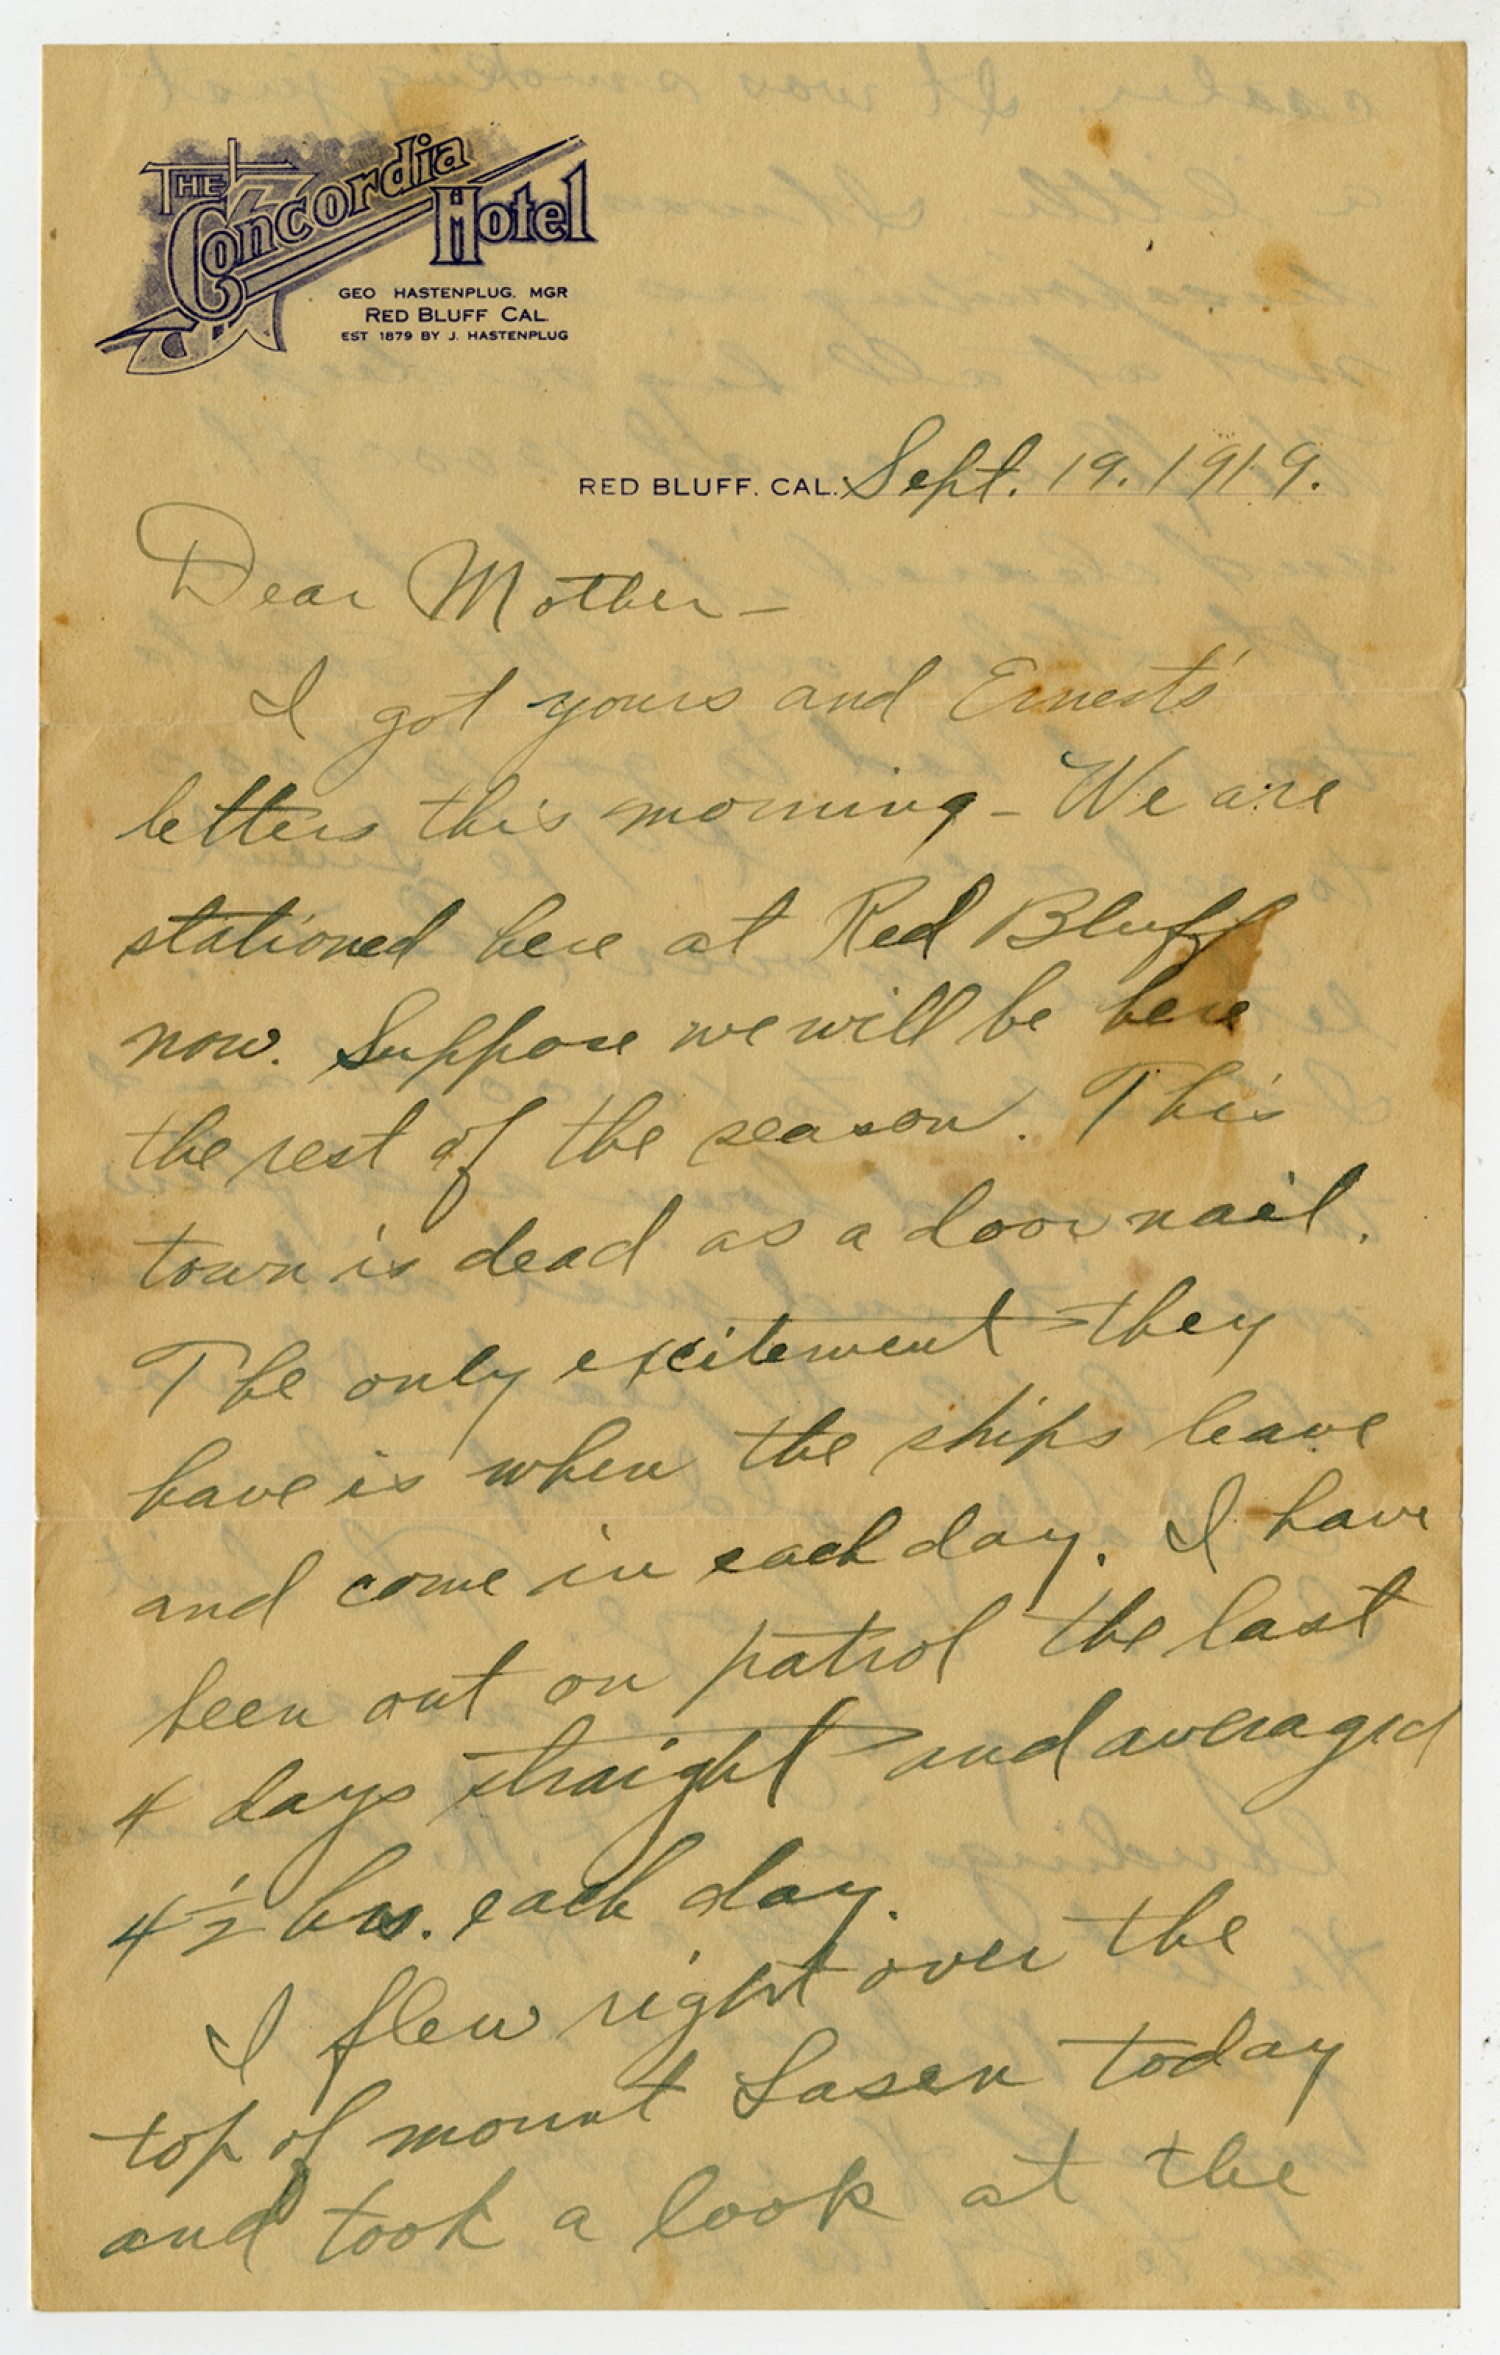 THE Concordia Hotel
GEO HASTENPLUG. MGR
RED BLUFF CAL.
EST 1879 BY J. HASTENPLUG
RED BLUFF. CAL. Sept. 19. 1919.
Dear Mother –
I got yours and Ernests'
letters this morning – We are
stationed here at Red Bluff
now. Suppose we will be here
the rest of the season. This
town is dead as a door nail.
The only excitement they
have is when the ships leave
and come in each day. I have
been out on patrol the last
4 days straight and averaged
4 1/2 hrs. each day.
I flew right over the
top of mount Lasen today
and took a look at the